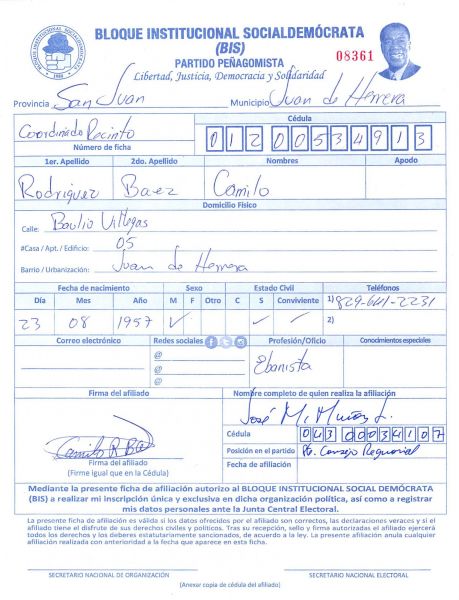 BLOQUE INSTITUCIONAL SOCIALDEMÓCRATA
(BIS)
PARTIDO PEÑAGOMISTA
Libertad, Justicia, Democracia y Solidaridad
08361
Provincia San Juan Municipio Juan de Herrera
Coordinado Recinto
Número de ficha
Cédula
01200534913
1er. Apellido 2do. Apellido Nombres Apodo
Rodriguez Baez Camilo
Domicilio Físico
Calle: Villegas
#Casa / Apt. / Edificio: 05
Barrio / Urbanización: Juan de Herrera
Fecha de nacimiento Sexo Estado Civil Teléfonos
Día Mes Año M F Otro C S Conviviente 1) 829-641-2231
23 08 1957 ✓ ✓ ✓ 2)
Correo electrónico Redes sociales Profesión/Oficio Conocimientos especiales
@
@
@
Ebanista
Firma del afiliado Nombre completo de quien realiza la afiliación
José M. L.
Camilo R Baez
Cédula
Posición en el partido Consejo Regional
Fecha de afiliación
Firma del afiliado
(Firme igual que en la Cédula)
Mediante la presente ficha de afiliación autorizo al BLOQUE INSTITUCIONAL SOCIAL DEMÓCRATA
(BIS) a realizar mi inscripción única y exclusiva en dicha organización política, así como a registrar
mis datos personales ante la Junta Central Electoral.
La presente ficha de afiliación es válida si los datos ofrecidos por el afiliado son correctos, las declaraciones veraces y si el
afiliado tiene el disfrute de sus derechos civiles y políticos. Tras su recepción, sello y firma autorizadas el afiliado ejercerá
todos los derechos y los deberes estatutariamente sancionados, de acuerdo a la ley. La presente afiliación anula cualquier
afiliación realizada con anterioridad a la fecha que aparece en esta ficha.
SECRETARIO NACIONAL DE ORGANIZACIÓN SECRETARIO NACIONAL ELECTORAL
(Anexar copia de cédula del afiliado)